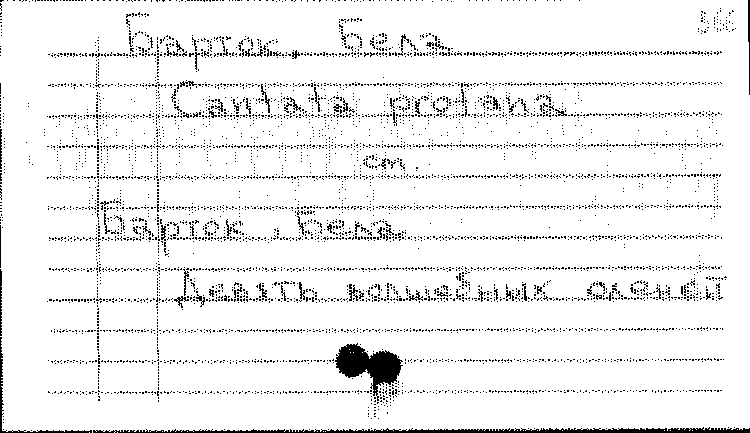 366
Барток, Бела
Cantata profana
см.
Барток, Бела
Девять волшебных оленей